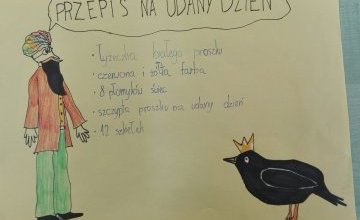 PRZEPIS NA UDANY DZIEŃ
· Łyżeczka białego proszku
· czerwona i żółta farba
· 8 płomyków świec
· szczypta proszku na udany dzień
· 12 szkiełek